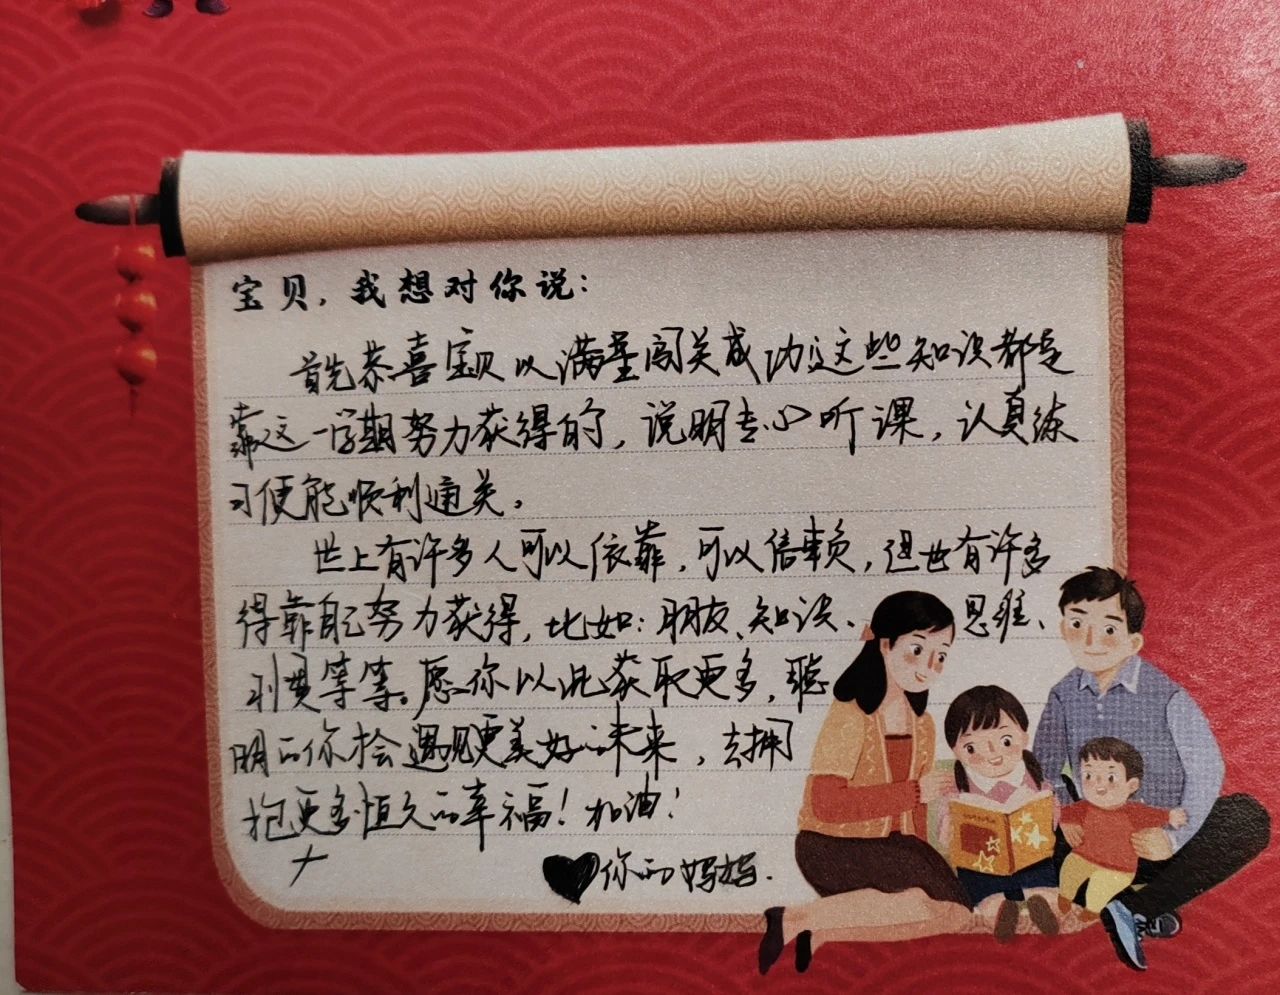 宝贝，我想对你说：
首先恭喜宝贝以满星闯关成功，这些知识都是
靠这一学期努力获得的，说明专心听课，认真练
习便能顺利通关。
世上有许多人可以依靠，可以信赖，但也有许多
得靠自己努力获得，比如：朋友、知识、思维、
习惯等等。愿你以此获取更多，聪
明的你会遇见更美好的未来，去拥
抱更多恒久的幸福！加油！
你的妈妈.